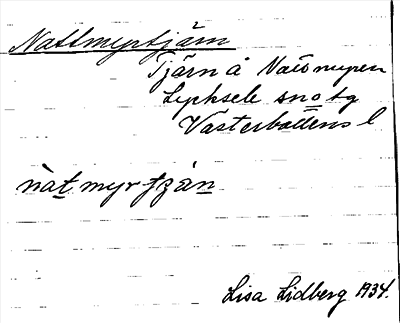 Nattmyrtjärn
Tjärn å
Lycksele sn o tg
Västerbottens l
Lisa Lidberg 1934.